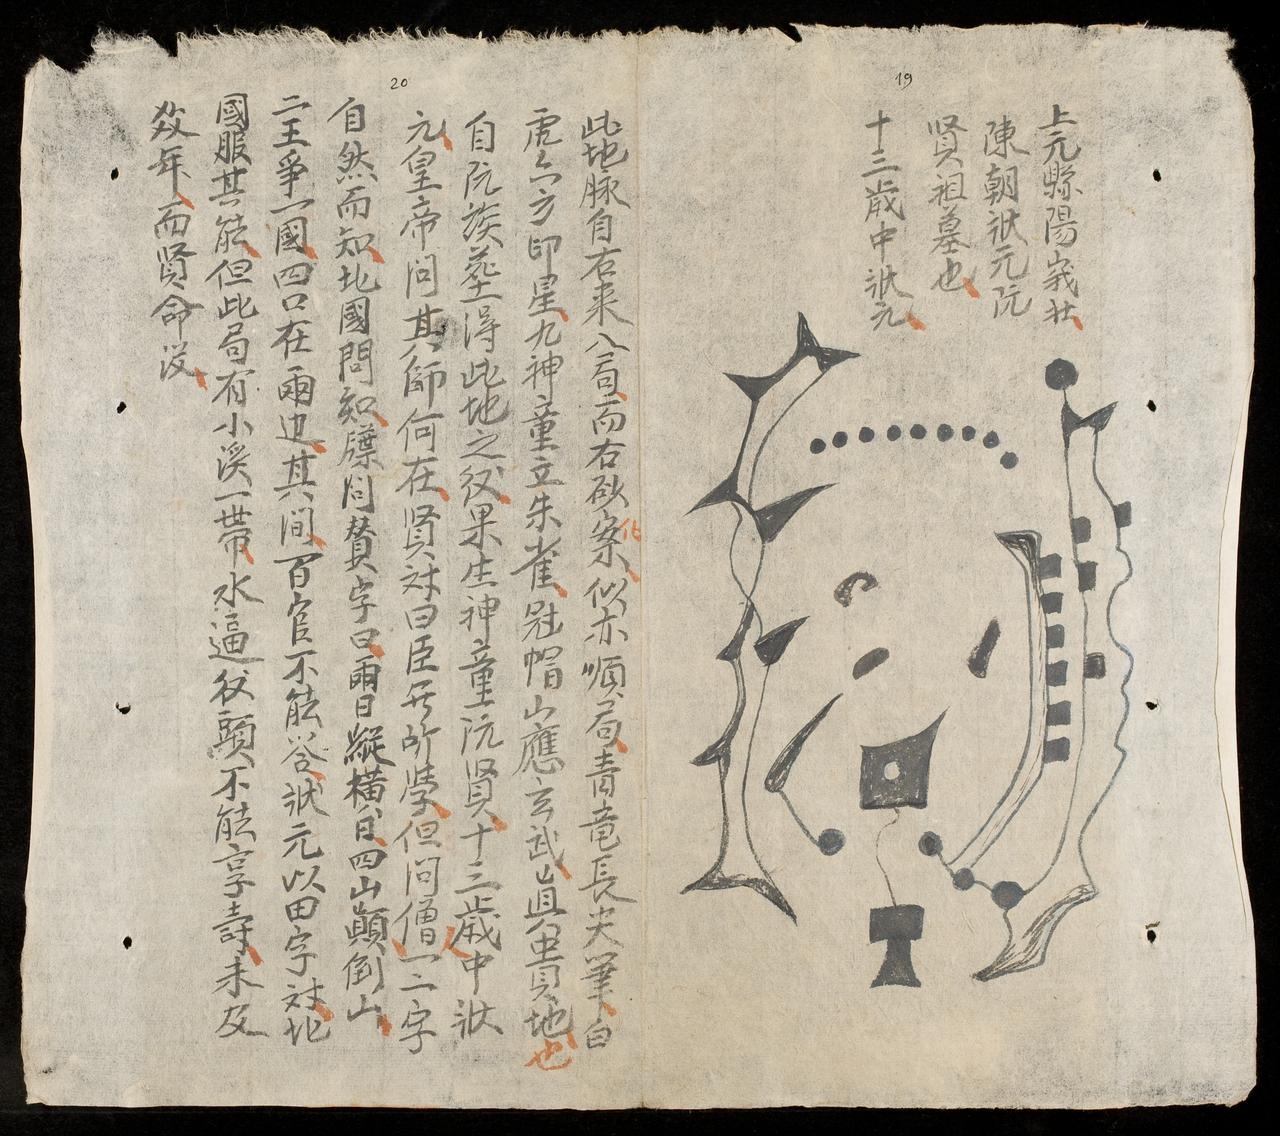 19
上元縣陽𡶀社
陳朝狀元阮
賢祖墓也
十三歲中狀元
20
此地脉自右来入局而右砂案似亦順局青竜長尖筆白
虎六方印星九神童立朱雀冠帽山應玄武眞虫貝地也
自阮族𦵏得此地之後果生神童阮賢十三歲中狀
元皇帝問其師何在賢对曰臣無所學但問僧一二字
自然而知北國問知牒問賛字曰兩日縱橫日四山顛倒山
二王爭一國四口在兩边其间百官不能答狀元以田字对北
國服其能但此局有小溪一带水逼後頭不能享壽未及
数年而賢命没